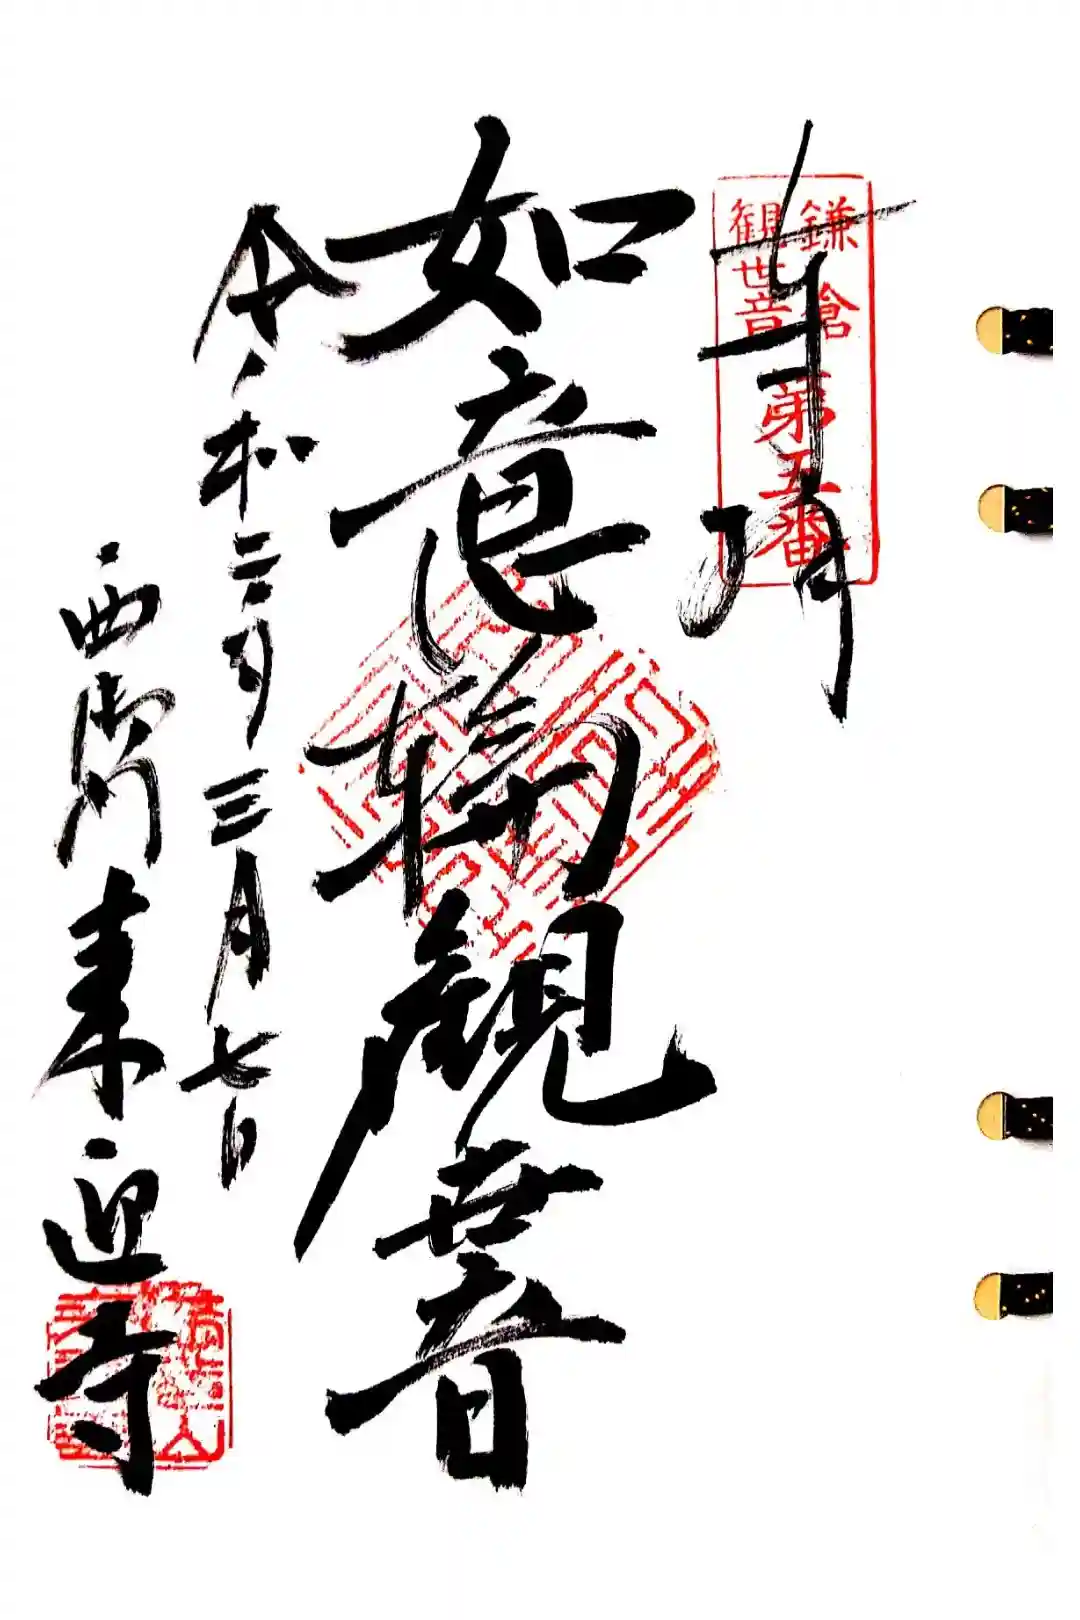 奉拝
鎌倉
観世音
第五番
如意輪観世音
令和二年三月七日
西御門来迎寺